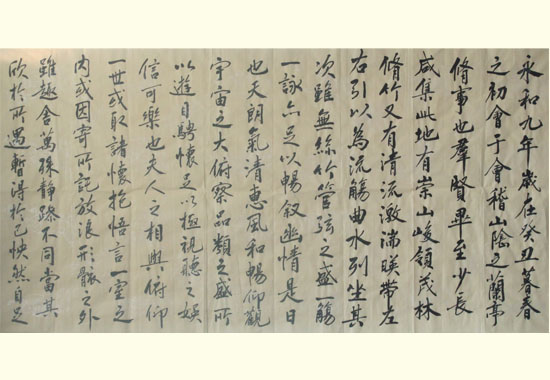 永和九年歲在癸丑暮春
之初會于會稽山陰之蘭亭
脩事也羣賢畢至少長
咸集此地有崇山峻領茂林
脩竹又有清流激湍暎帶左
右引以為流觴曲水列坐其
次雖無絲竹管弦之盛一觴
一詠亦足以暢叙幽情是日
也天朗氣清惠風和暢仰觀
宇宙之大俯察品類之盛所
以遊目騁懷足以極視聽之娛
信可樂也夫人之相與俯仰
一世或取諸懷抱悟言一室之
內或因寄所託放浪形骸之外
雖趣舍萬殊靜躁不同當其
欣於所遇暫得於己怏然自足